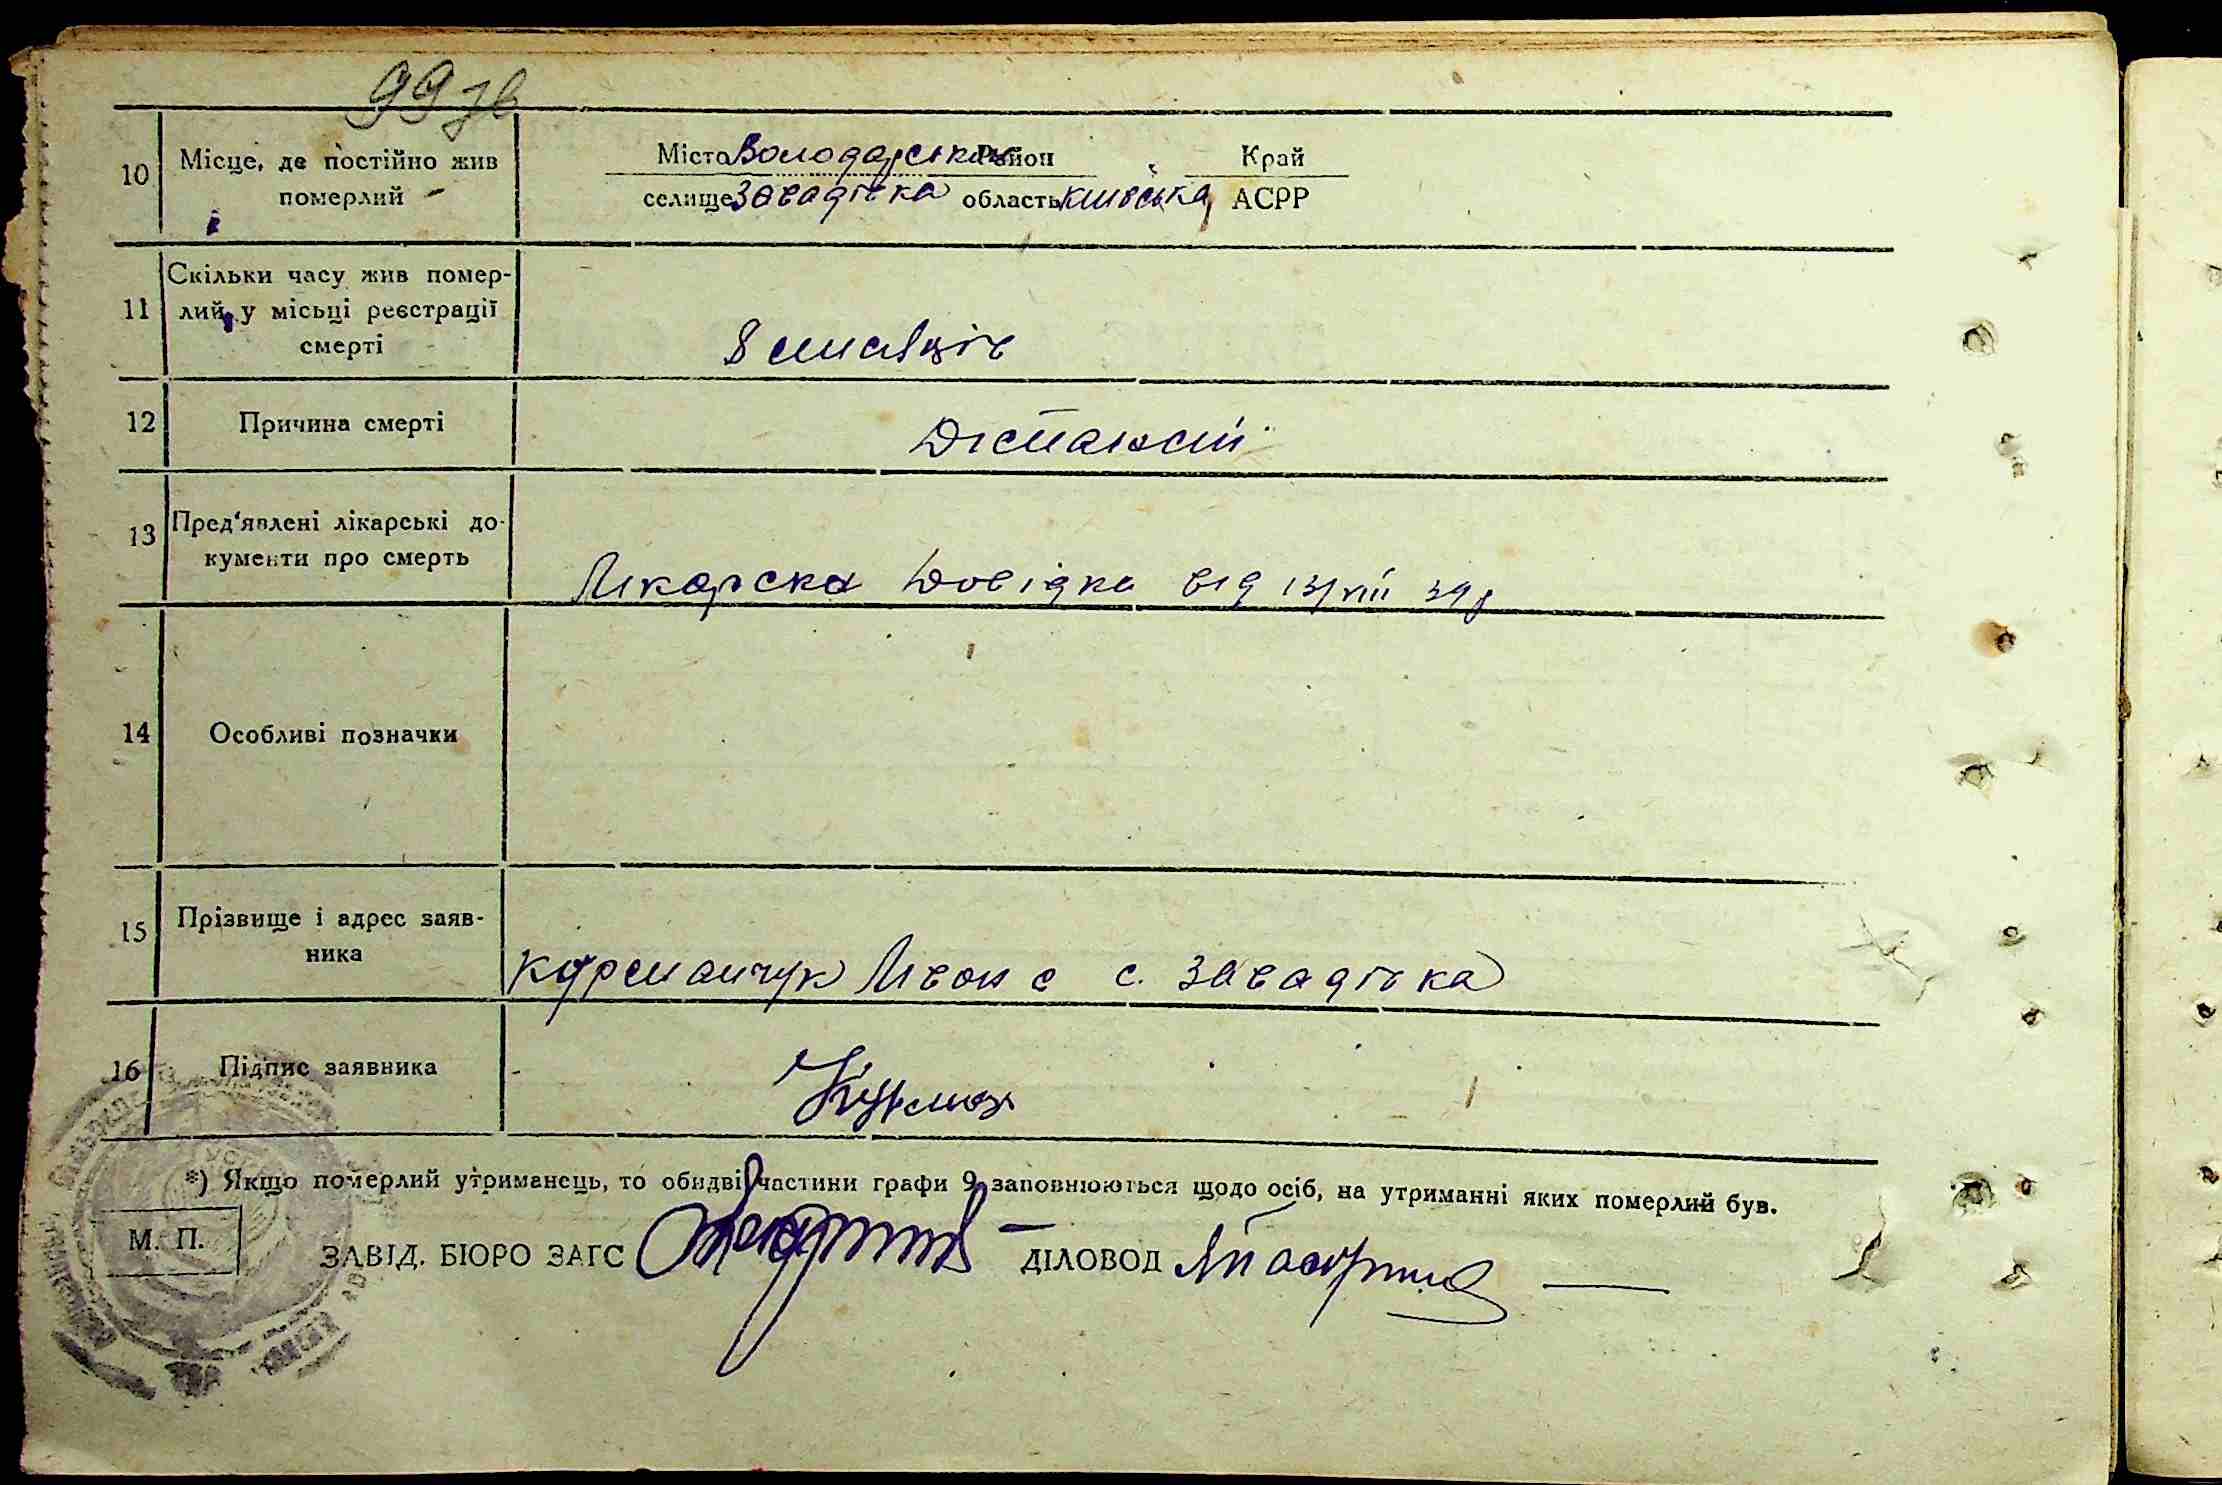 99 зв
10 Місце, де постійно жив померлий
Міста Володарський Район Край
селище Завадівка область київська АСРР
11 Скільки часу жив помер-
лий у місьці реєстрації
смерті
8 місяців
12 Причина смерті
13 Пред'явлені лікарські до-
кументи про смерть
Лікарска Довідка від 13/VIII 39р
14 Особливі позначки
15 Прізвище і адрес заяв-
ника
Курманчук с. Завадівка
16 Підпис заявника
*) Якщо померлий утриманець, то обидві частини графи 9 заповнюються щодо осіб, на утриманні яких померлий був.
М. П.
ЗАВІД. БЮРО ЗАГС ДІЛОВОД